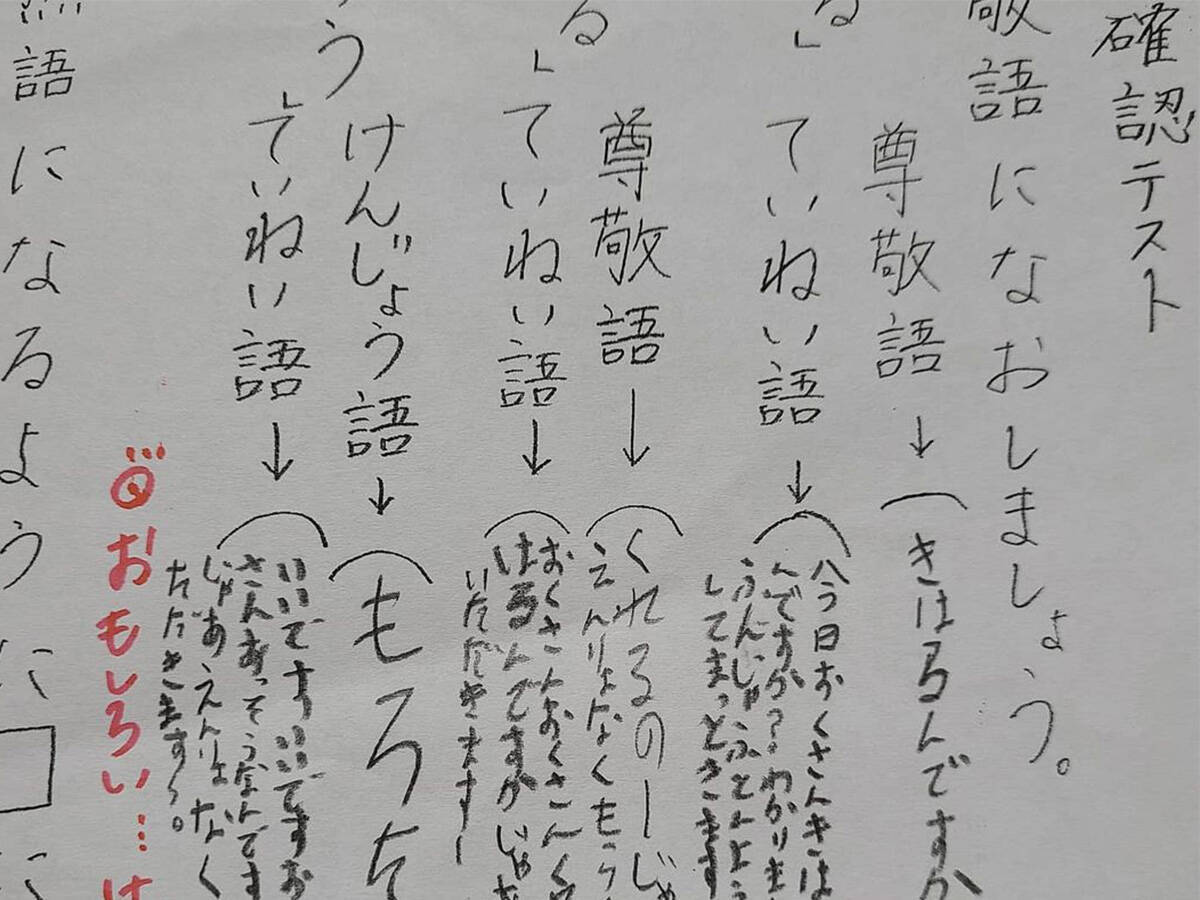 確認テスト
敬語になおしましょう。
尊敬語→(きはるんですか
る」
ていねい語→(今日おくさんきは
んですか?わかりま
してまっときます
尊敬語→(くれるのーじゃ
えんりょなくもら
る」ていねい語→(おくさんおくさんく
はるんですかじゃ
いただきますー
けんじょう語→(もろた
う」ていねい語→(いいですいいですお
さんあってそうなんです
じゃあえんりょなく
ただきます〜。
おもしろい…け
語になるように□に